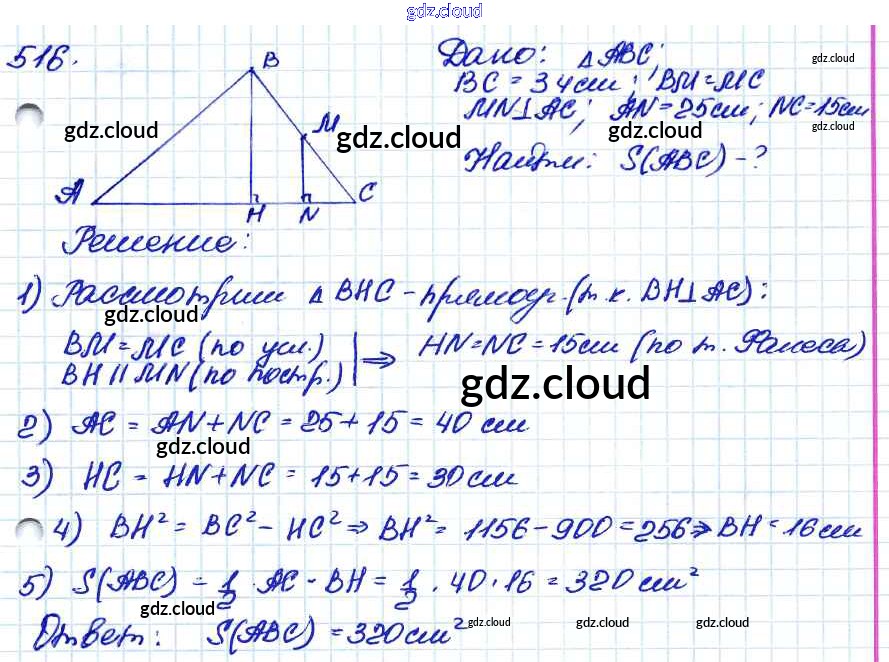 gdz.cloud
516.
B
Дано: △ABC;
gdz.cloud
BC = 34см; BM = MC
MN⊥AC; AN=25см; NC=15см
gdz.cloud
M
gdz.cloud
gdz.cloud
gdz.cloud
Найти: S(ABC) - ?
A
H
N
C
Решение:
1) Рассмотрим △BHC - прямоуг. (т.к. BH⊥AC):
gdz.cloud
BM = MC (по усл.)
BH || MN (по постр.)
⇒ HN=NC=15см (по т. Фалеса)
gdz.cloud
2) AC = AN + NC = 25 + 15 = 40 см
gdz.cloud
3) HC = HN + NC = 15 + 15 = 30 см
4) BH² = BC² - HC² ⇒ BH² = 1156 - 900 = 256 ⇒ BH = 16 см
5) S(ABC) = 1/2 · AC · BH = 1/2 · 40 · 16 = 320 см²
gdz.cloud
Ответ: S(ABC) = 320 см²
gdz.cloud
gdz.cloud
gdz.cloud